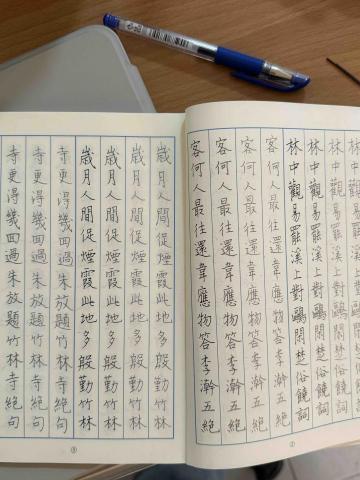 林中觀易罷溪上對鷗閑楚俗饒詞
林中觀易罷溪上對鷗閑楚俗饒詞
林中觀易罷溪上對鷗閑楚俗饒詞
林中觀易罷溪上對鷗閑楚俗饒詞
客何人最往還韋應物答李澣五絕
客何人最往還韋應物答李澣五絕
客何人最往還韋應物答李澣五絕
客何人最往還韋應物答李澣五絕
歲月人間促煙霞此地多殷勤竹林
歲月人間促煙霞此地多殷勤竹林
歲月人間促煙霞此地多殷勤竹林
歲月人間促煙霞此地多殷勤竹林
寺更得幾回過朱放題竹林寺絕句
寺更得幾回過朱放題竹林寺絕句
寺更得幾回過朱放題竹林寺絕句